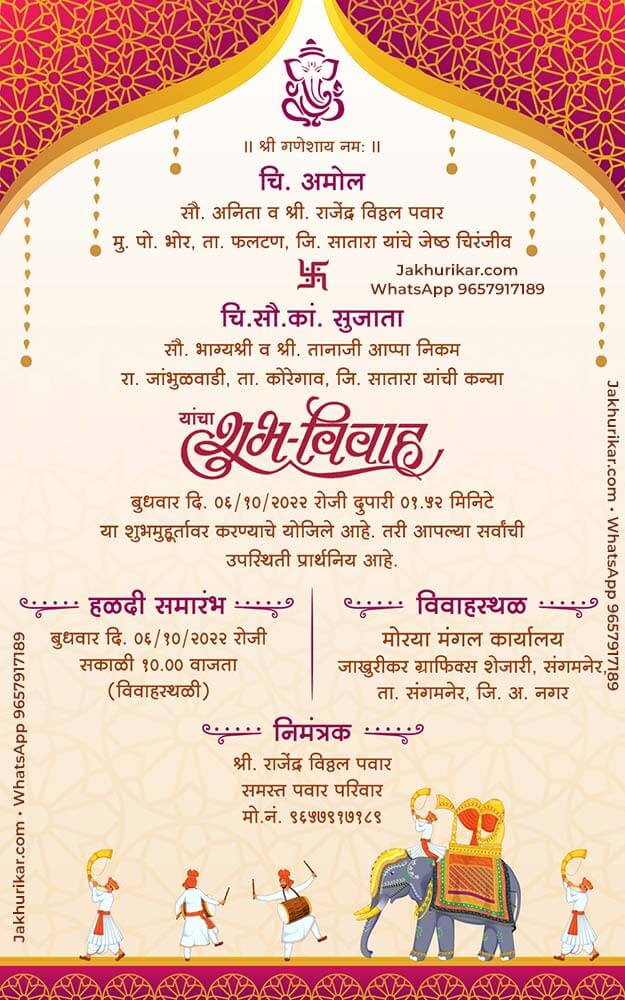 ॥ श्री गणेशाय नमः ॥
चि. अमोल
सौ. अनिता व श्री. राजेंद्र विठ्ठल पवार
मु. पो. भोर, ता. फलटण, जि. सातारा यांचे जेष्ठ चिरंजीव
Jakhurikar.com
WhatsApp 9657917189
चि.सौ.कां. सुजाता
सौ. भाग्यश्री व श्री. तानाजी आप्पा निकम
रा. जांभुळवाडी, ता. कोरेगाव, जि. सातारा यांची कन्या
यांचा
शुभ-विवाह
बुधवार दि. ०६/१०/२०२२ रोजी दुपारी ०१.५२ मिनिटे
या शुभमुहूर्तावर करण्याचे योजिले आहे. तरी आपल्या सर्वांची
उपस्थिती प्रार्थनिय आहे.
हळदी समारंभ
बुधवार दि. ०६/१०/२०२२ रोजी
सकाळी १०.०० वाजता
(विवाहस्थळी)
विवाहस्थळ
मोरया मंगल कार्यालय
जाखुरीकर ग्राफिक्स शेजारी, संगमनेर,
ता. संगमनेर, जि. अ. नगर
निमंत्रक
श्री. राजेंद्र विठ्ठल पवार
समस्त पवार परिवार
मो.नं. ९६५७९१७१८९
Jakhurikar.com • WhatsApp 9657917189
Jakhurikar.com • WhatsApp 9657917189